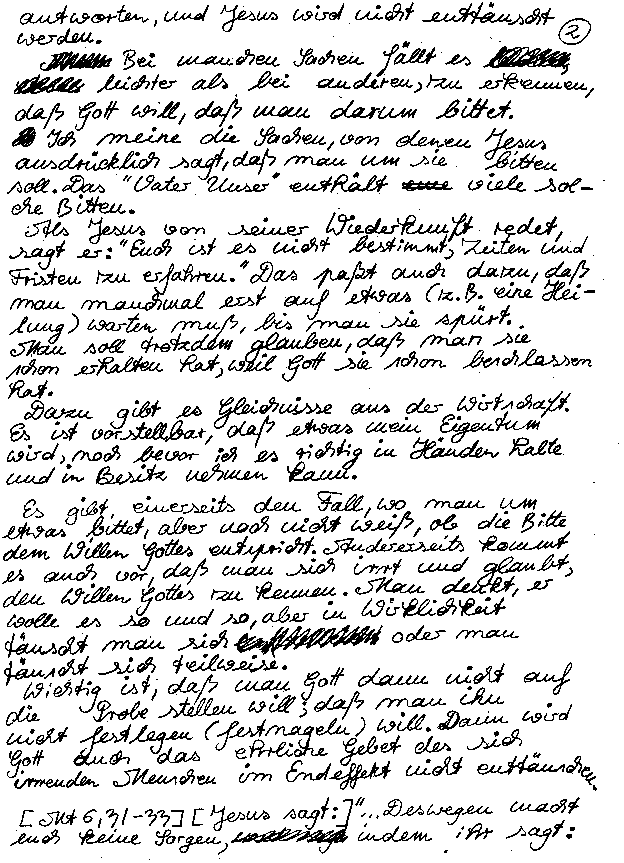 antworten, und Jesus wird nicht enttäuscht
werden.
2
Bei manchen Sachen fällt es
leichter als bei anderen, zu erkennen,
daß Gott will, daß man darum bittet.
Ich meine die Sachen, von denen Jesus
ausdrücklich sagt, daß man um sie bitten
soll. Das "Vater Unser" enthält viele sol-
che Bitten.
Als Jesus von seiner Wiederkunft redet,
sagt er: "Euch ist es nicht bestimmt, Zeiten und
Fristen zu erfahren." Das paßt auch dazu, daß
man manchmal erst auf etwas (z.B. eine Hei-
lung) warten muß, bis man sie spürt.
Man soll trotzdem glauben, daß man sie
schon erhalten hat, weil Gott sie schon beschlossen
hat.
Dazu gibt es Gleichnisse aus der Wirtschaft.
Es ist vorstellbar, daß etwas mein Eigentum
wird, noch bevor ich es richtig in Händen halte
und in Besitz nehmen kann.
Es gibt einerseits den Fall, wo man um
etwas bittet, aber noch nicht weiß, ob die Bitte
dem Willen Gottes entspricht. Andererseits kommt
es auch vor, daß man sich irrt und glaubt,
den Willen Gottes zu kennen. Man denkt, er
wolle es so und so, aber in Wirklichkeit
täuscht man sich oder man
täuscht sich teilweise.
Wichtig ist, daß man Gott dann nicht auf
die Probe stellen will; daß man ihn
nicht festlegen (festnageln) will. Dann wird
Gott auch das ehrliche Gebet des sich
irrenden Menschen im Endeffekt nicht enttäuschen.
[Mt 6,31-33] [Jesus sagt:] "...Deswegen macht
euch keine Sorgen, indem ihr sagt: